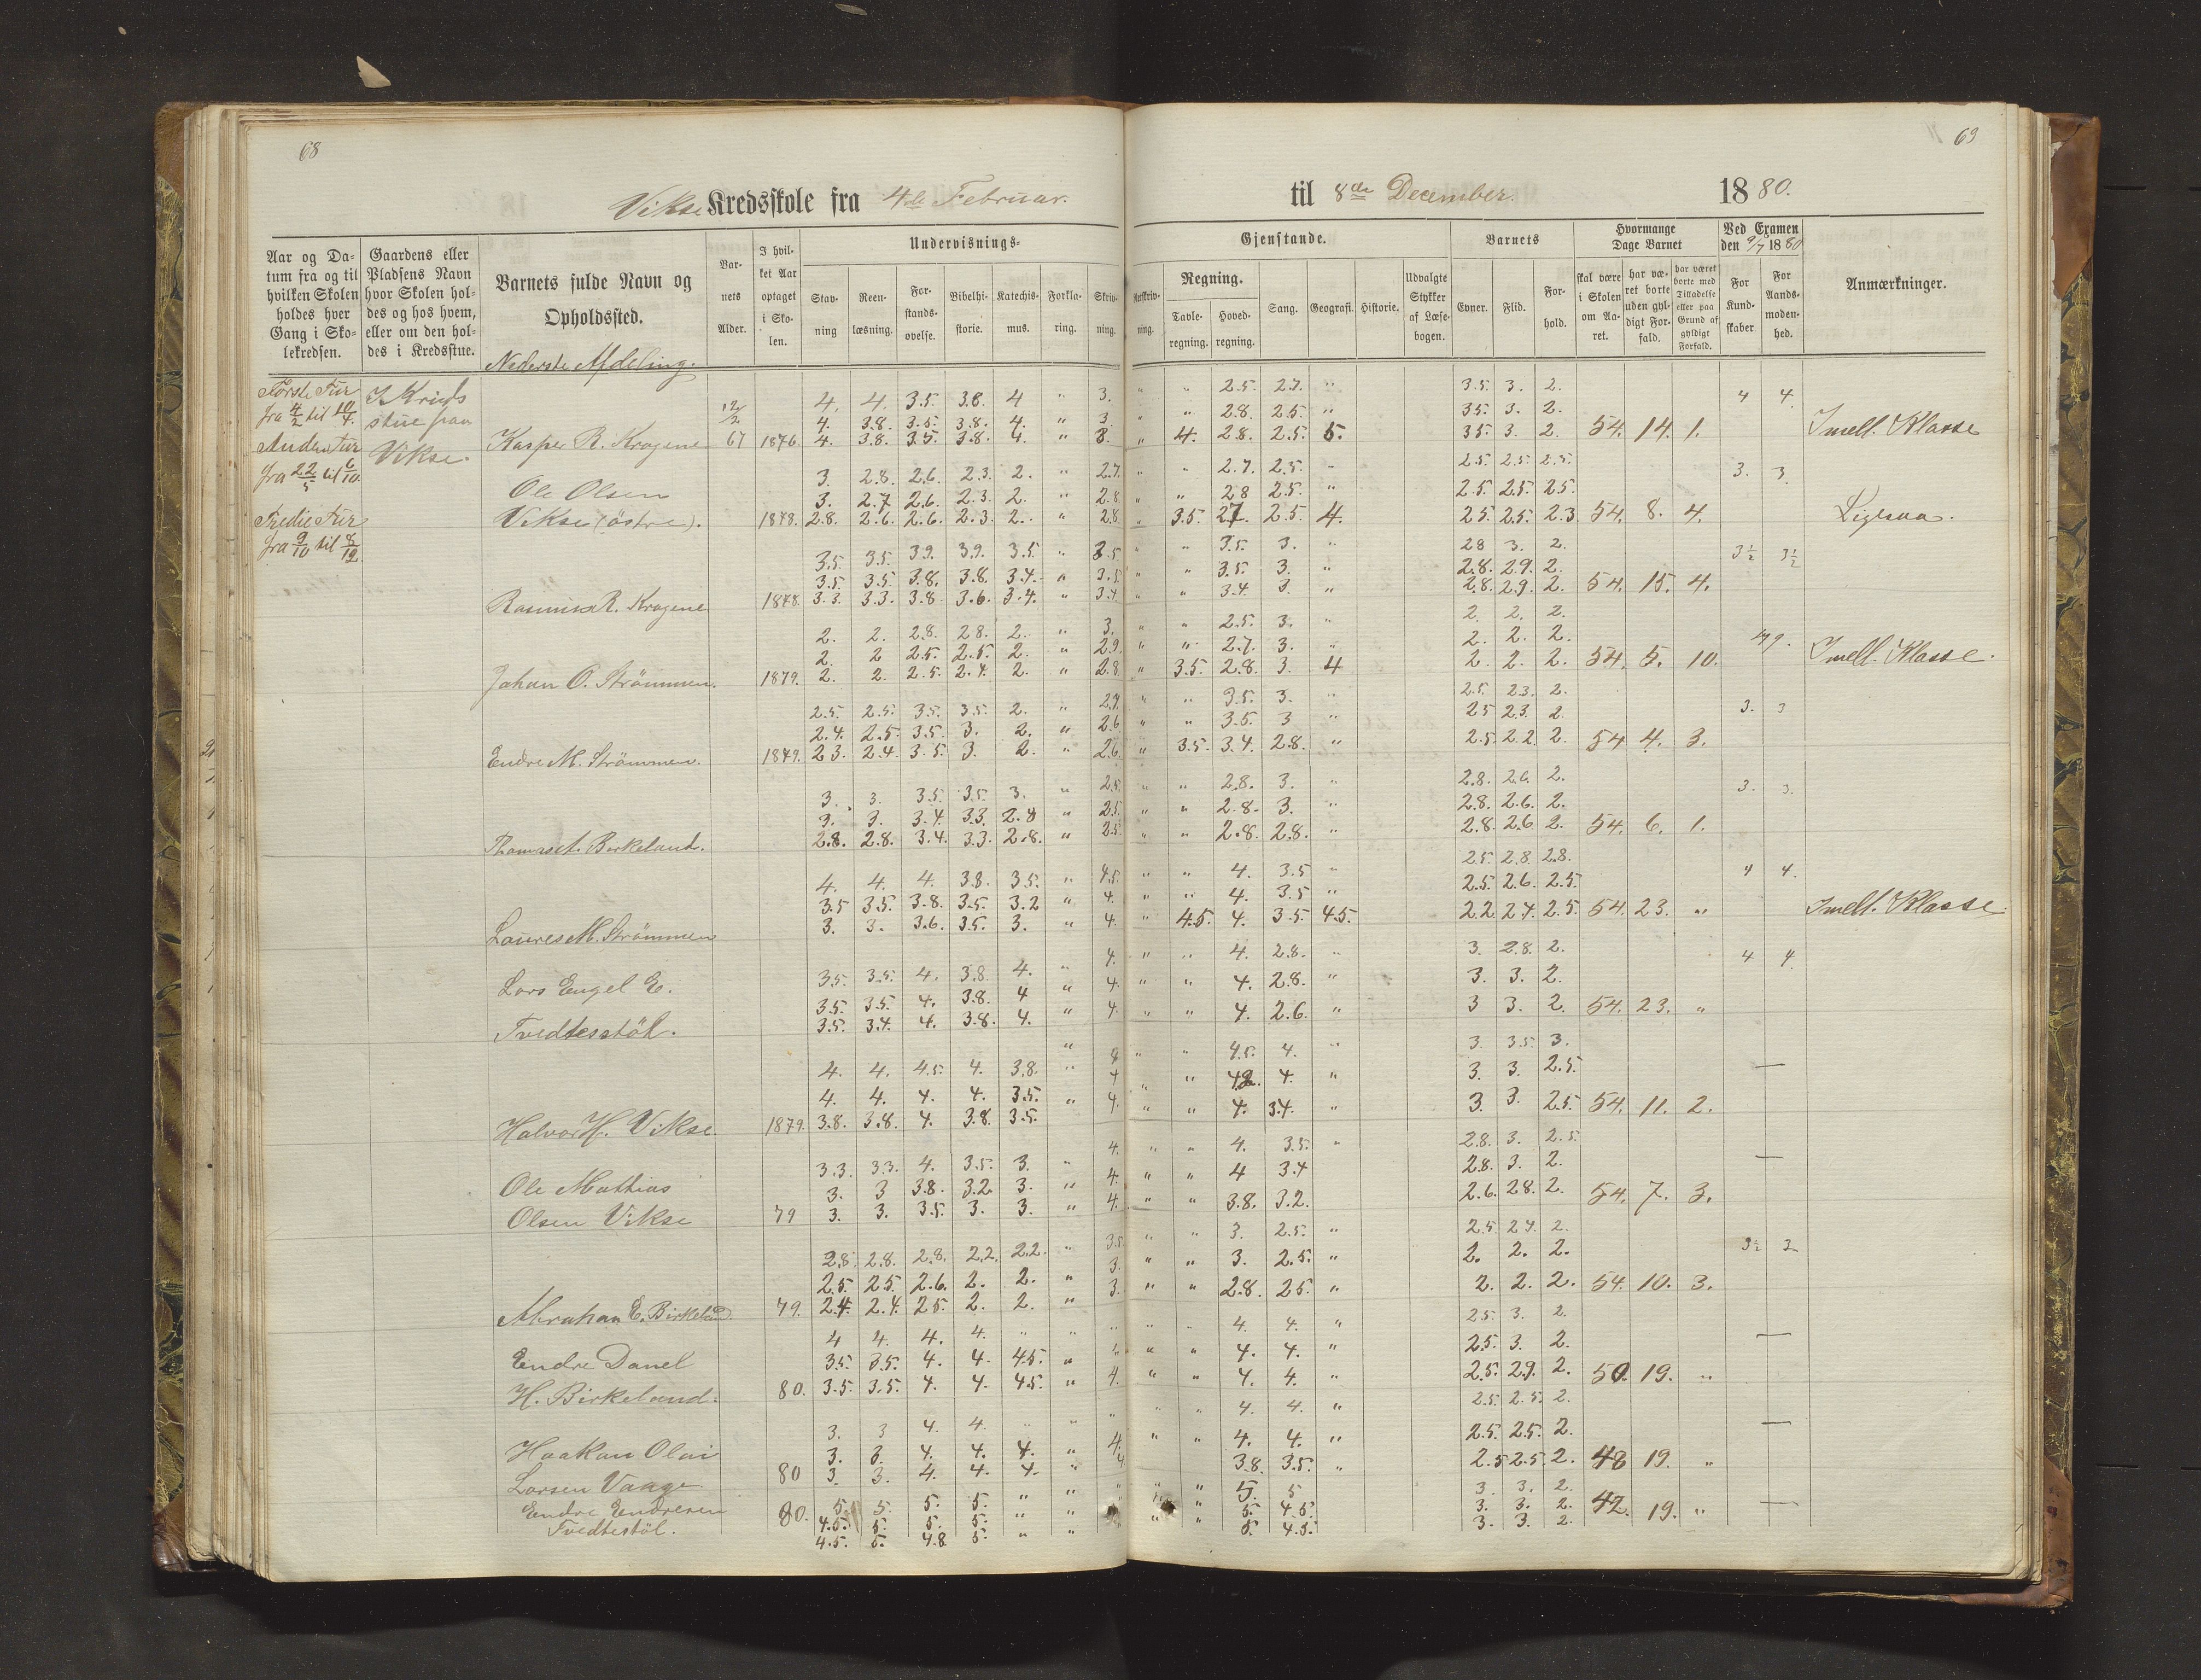 68
69
Vikse Kredsskole fra 4de Februar.
til 8de December. 1880.
Aar og Datum fra og til hvilken Skolen holdes hver Gang i Skolekredsen.
Gaardens eller Pladsens Navn hvor Skolen holdes og hos hvem, eller om den holdes i Kredsstue.
Barnets fulde Navn og Opholdssted.
Barnets Alder.
I hvilket Aar optaget i Skolen.
Undervisnings-
Stavning
Reenlæsning.
Forstandsøvelse.
Bibelhistorie.
Katechismus.
Forklaring.
Skrivning.
Gjenstande.
Retskrivning.
Regning.
Tavleregning.
Hovedregning.
Sang.
Geografi.
Historie.
Udvalgte Stykker af Læsebogen.
Barnets
Evner.
Flid.
Forhold.
Hvormange Dage Barnet
skal være i Skolen om Aaret.
har været borte uden gyldigt Forfald.
har været borte med Tilladelse eller paa Grund af gyldigt Forfald.
Ved Examen den 9/7 1880
For Kundskaber
For Aandsmodenhed.
Anmærkninger.
Nederste Afdeling.
Første Tur fra 4/2 til 10/4.
Anden Tur fra 22/5 til 6/10.
Tredie Tur fra 9/10 til 8/12.
I Krids stue paa Vikse.
4. 4. 3.5. 3.8. 4 " 3. " " 2.5. 2.7. " 3.5. 3. 2. 4 4.
12/2 4. 3.8. 3.5. 3.8. 4. " 3. " " 2.8. 2.5. " 3.5. 3. 2.
Kasper R. Krogene 67 1876. 4. 3.8. 3.5. 3.8. 4. " 3. " 4. 2.8. 2.5. 5. 3.5. 3. 2. 54. 14. 1. Imell. Klasse
3. 2.8. 2.6. 2.3. 2. " 2.7. " " 2.7. 2.5. " 2.5. 2.5. 2.5. 3. 3
Ole Olsen 3. 2.7 2.6. 2.3. 2. " 2.8. " " 2.8 2.5. " 2.5. 2.5. 2.5.
Vikse (östre). 1878. 2.8. 2.6. 2.6. 2.3. 2. " 2.8 " 3.5. 2.7. 2.5. 4. 2.5. 2.5. 2.3 54. 8. 4. Ligesaa.
3.5. 3.5. 3.9. 3.9. 3.5. " 3.5 " " 3.5. 3. " 2.8 3. 2. 3½ 3½
3.5. 3.5 3.8. 3.8. 3.4. " 3.5. " " 3.5. 3. " 2.8. 2.9. 2.
Rasmus R. Krogene 1878. 3.3. 3.3. 3.8. 3.6. 3.4. " 3.4. " " 3.4. 3. " 2.8. 2.9. 2. 54. 15. 4.
2. 2. 2.8. 2.8. 2. " 3. " " 2.5. 3. " 2. 2. 2.
2. 2 2.5. 2.5. 2. " 2.9. " " 2.7. 3. " 2. 2. 2.
Johan O. Strömmen. 1879. 2. 2. 2.5. 2.4. 2. " 2.8. " 3.5. 2.8. 3. 4 2. 2. 2. 54. 5. 10. Imell. Klasse.
2.5. 2.5. 3.5. 3.5. 2. " 2.7. " " 3.5. 3. " 2.5. 2.3. 2. 3. 3
2.4. 2.5. 3.5. 3. 2. " 2.6 " " 3.5. 3 " 2.5 2.3. 2.
Endre M. Strömmen. 1879. 2.3. 2.4. 3.5. 3. 2. " 2.6. " 3.5. 3.4. 2.8. " 2.5. 2.2. 2. 54 4. 3.
3. 3. 3.5. 3.5. 3. " 2.5. " " 2.8. 3. " 2.8. 2.6. 2. 3. 3.
3. 3. 3.4. 3.3. 2.8 " 2.5. " " 2.8. 3. " 2.8. 2.6. 2.
Birkeland. 2.8. 2.8. 3.4. 3.3. 2.8. " 2.5. " " 2.8. 2.8. " 2.8. 2.6 2. 54. 6. 1.
4. 4. 4. 3.8. 3.5. " 4.5. " " 4. 3.5 " 2.5. 2.8. 2.8. 4 4.
3.5 3.5. 3.8. 3.5. 3.2 " 4. " " 4. 3.5 " 2.5. 2.6. 2.5.
Laures M. Strömmen 3. 3. 3.6. 3.5. 3. " 4. " 4.5. 4. 3.5 4.5. 2.2 2.4. 2.5. 54. 23. " Imell. Klasse.
3.5. 3.5. 4. 3.8 4. " 4. " " 4. 2.8. " 3. 2.8. 2. 4 4.
Lars Engel E. 3.5. 3.5. 4. 3.8. 4 " 4. " " 4. 2.8. " 3. 3. 2.
Tvedtestöl. 3.5. 3.4. 4. 3.8. 4. " 4. " " 4. 2.6. " 3 3. 2. 54. 23. "
4. 4. 4.5. 4. 3.8. " 4 " " 4.5. 4. " 3. 3.5 3.
4. 4. 4. 4. 3.5. " 4 " " 4.2. 4. " 3. 3. 2.5. —
Halvor H. Vikse. 1879. 3.8. 3.8. 4. 3.8. 3.5. " 4. " " 4. 3.4. " 3. 3. 2.5. 54. 11. 2.
3.3. 3.3. 4. 3.5. 3. " 4. " " 4. 3.5. " 2.8. 3. 2.5.
Ole Mathias 3. 3 3.8. 3.2 3. " 4. " " 4 3.4 2.8. 3. 2. —
Olsen Vikse 79 3. 3. 3.5 3. 3. " 4. " " 3.8. 3.2. 2.6. 2.8. 2. 54. 7. 3.
2.8. 2.8. 2.8. 2.2. 2.2. " 3.5 " " 3. 2.5. " 2.5 2.4. 2.
2.5. 2.5. 2.6. 2. 2. " 3. " " 3. 2.5. " 2. 2. 2. 3½ 3.
Abraham E. Birkeland. 79. 2.4. 2.4. 2.5. 2. 2. " 3. " " 2.8. 2.5. " 2. 2. 2. 54. 10. 3.
4 4. 4. 4. " " " " " 4. 4. " 2.5. 3. 2.
Endre Danel 3.5. 3.5. 4. 4. 4.5. " " " " 4. 4. " 2.5. 3. 2. —
H. Birkeland. 80. 3.5. 3.5. 4. 4. 4.5. " 4. " " 4. 4. " 2.5. 2.9. 2. 50. 19. "
3. 3 4. 4. " " " " " 4. 4. " 2.5. 2.5. 2.
Haakon Olai 3. 3. 4. 4. 4. " 4. " " 4. 4. " 2.5. 2.5. 2. —
Larsen Vaage 80 3. 3. 4. 4. 4. " 4 3.8. 3.5. " 2.5 2.5. 2. 48 19. "
Endre Endresen 5. 5. 5. 5. " " " " " 5. 5 3. 3. 2.
Tvedtestöl. 80. 4.5. 5. 5. 5. " " " " 5. 4.5. 3. 3. 2. 42. 19. " —
4.5. 5. 4.8 5. " " " " 5. 4.5. 3. 3. 2.